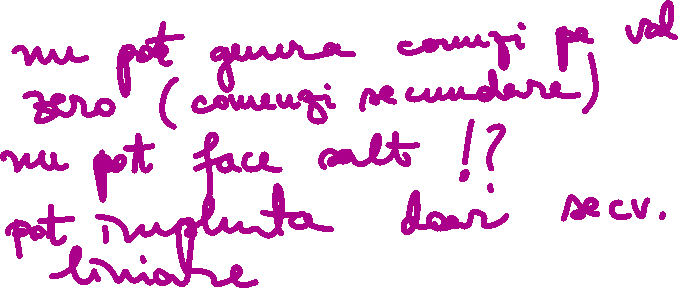 nu pot genera comenzi pe val
zero (comenzi secundare)
nu pot face salt !?
pot implmta doar secv.
liniare